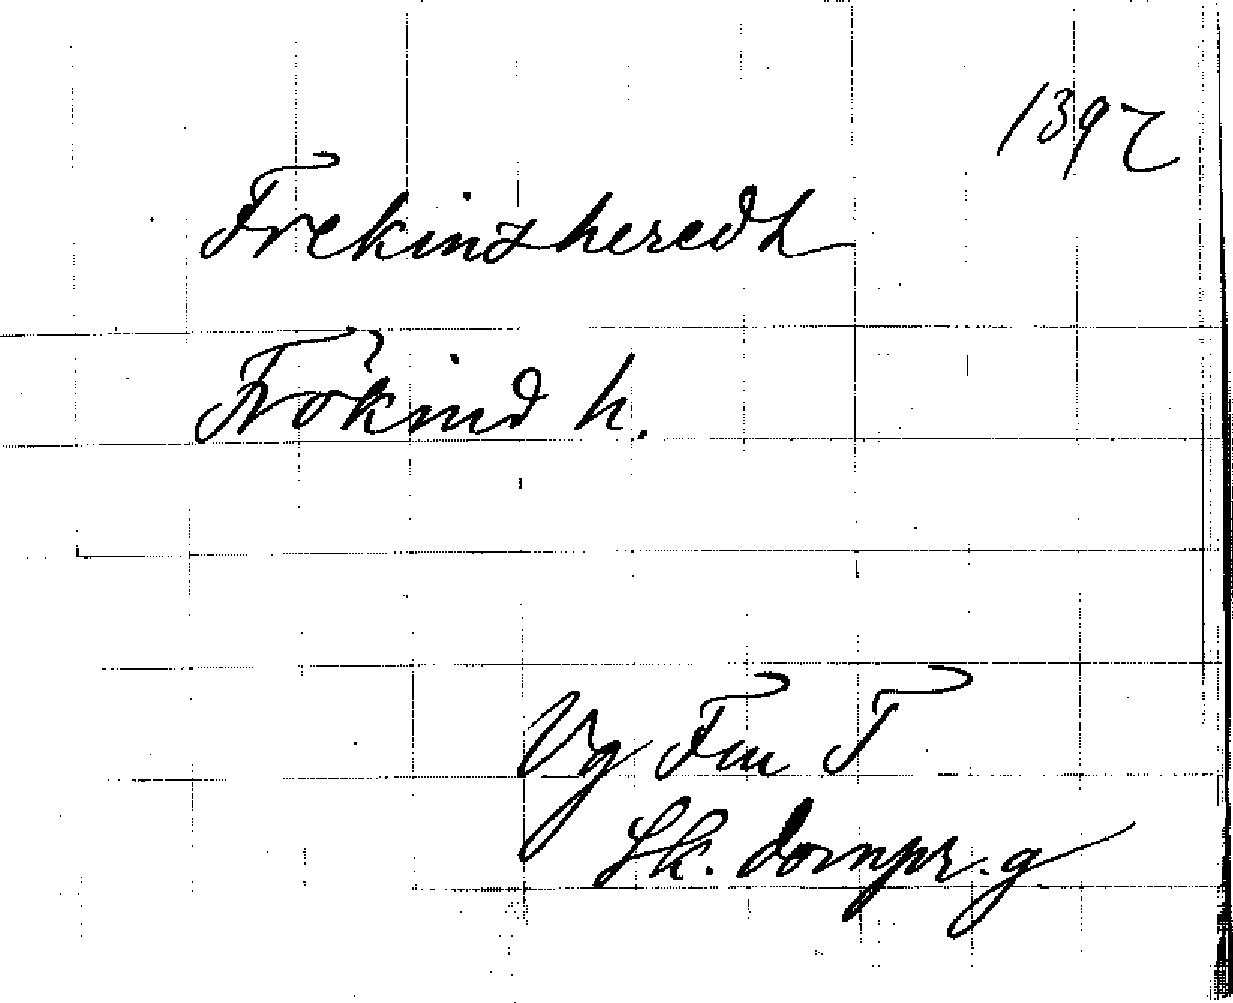 1397
Frekinsheredh
Frökind h.
Vg Fru T
Sk. dompr. g